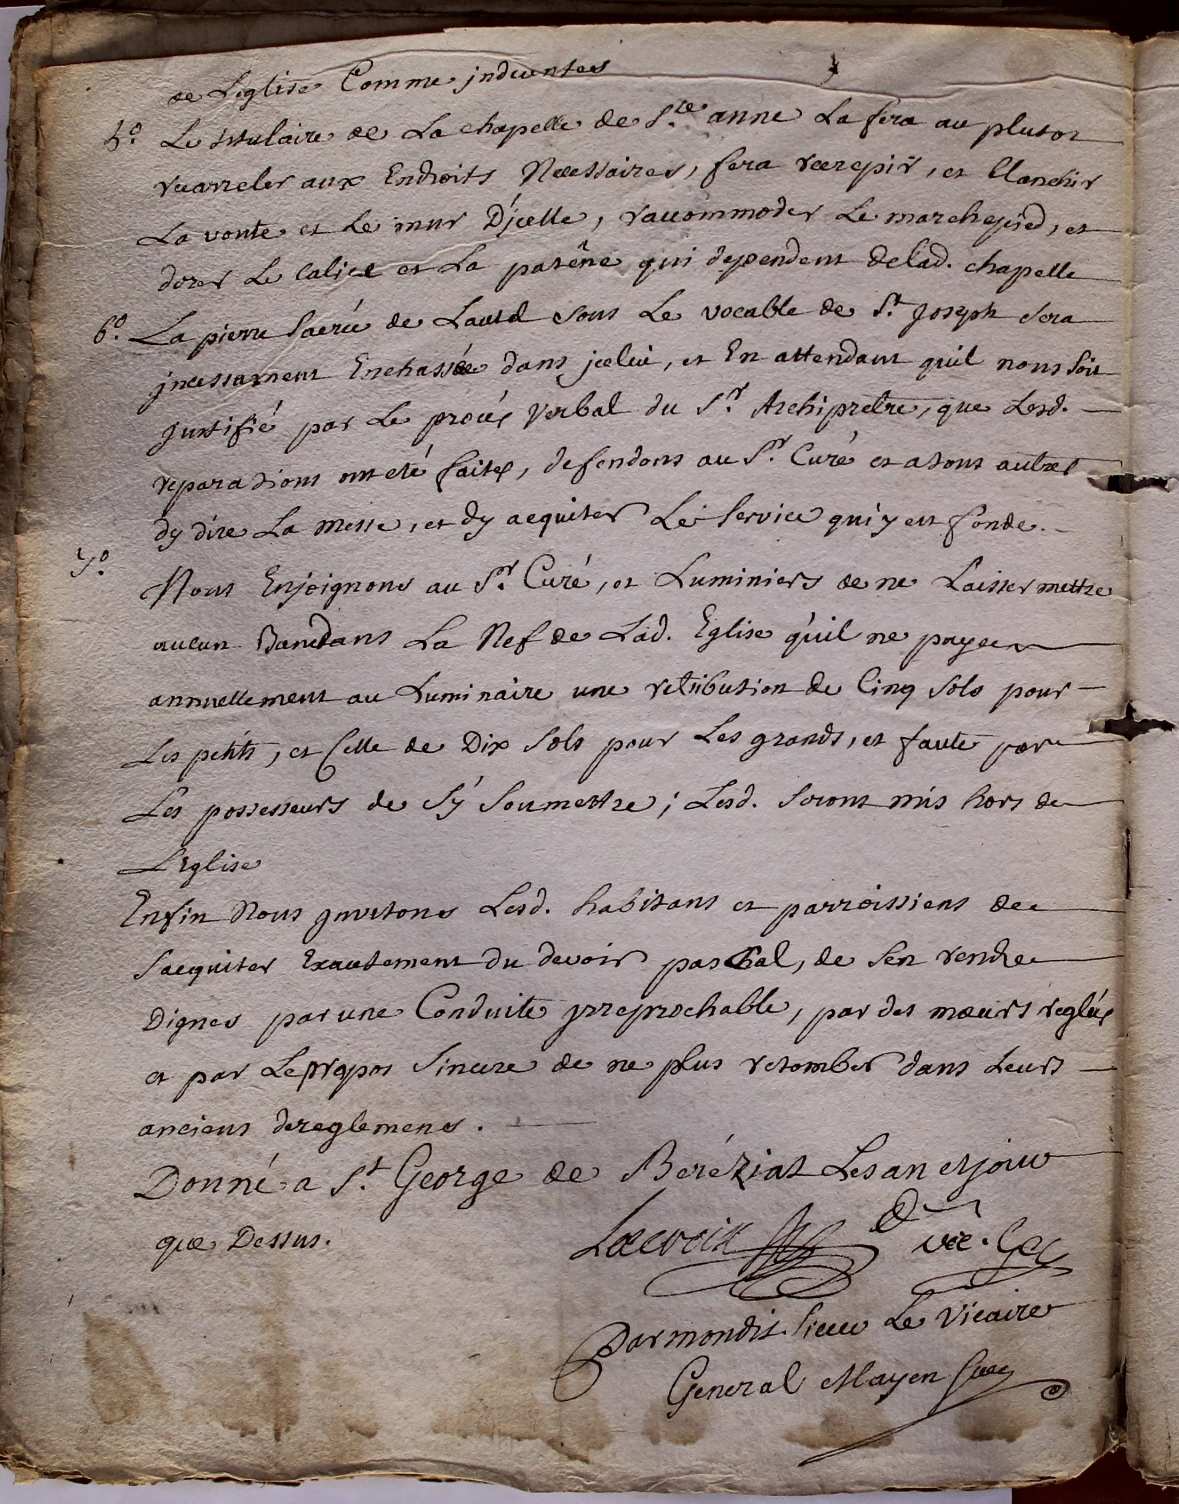 de Léglise Comme indecentes
5.° Le titulaire de La chapelle de S.te anne La fera au plutot
recarreler aux Endroits Necessaires, fera recrepir, et blanchir
La voute et Le mur D'jcelle, raccommoder Le marchepied, et
dorer Le Calice et La patêne qui dependent delad. chapelle
6.° La pierre Sacrée de Lautel sous Le vocable de S.t Joseph Sera
jncessament Enchassée dans jceluï, et En attendant quil nous soit
justifié par Le procés verbal du S.r Archiprêtre, que Lesd.
reparations ont eté faites, defendons au S.r Curé et a tous autres
dy dire La Messe, et dy acquiter Le Service qui y est fondé.
7.° Nous Enjoignons au S.r Curé, et Luminiers de ne Laisser mettre
aucun Banc dans La Nef de Lad. Eglise qu'il ne paye
annuellement au Luminaire une retribution de Cinq Sols pour
Les petits, et Celle de Dix Sols pour Les grands, et faute par
Les possesseurs de s'y Soumettre; Lesd. seront mis hors de
L'Eglise
Enfin Nous jnvitons Lesd. habitans et parroissiens de
S'acquiter Exactement du devoir pascal, de sen rendre
Dignes par une Conduite jrreprochable, par des mœurs reglées
et par Le propos Sincere de ne plus retomber dans Leurs
anciens dereglemens.
Donné a S.t George de Beréziat Les an et jour
que Dessus. Lacroix vic. Ge
Par mondit Sieur Le Vicaire
General Mayen